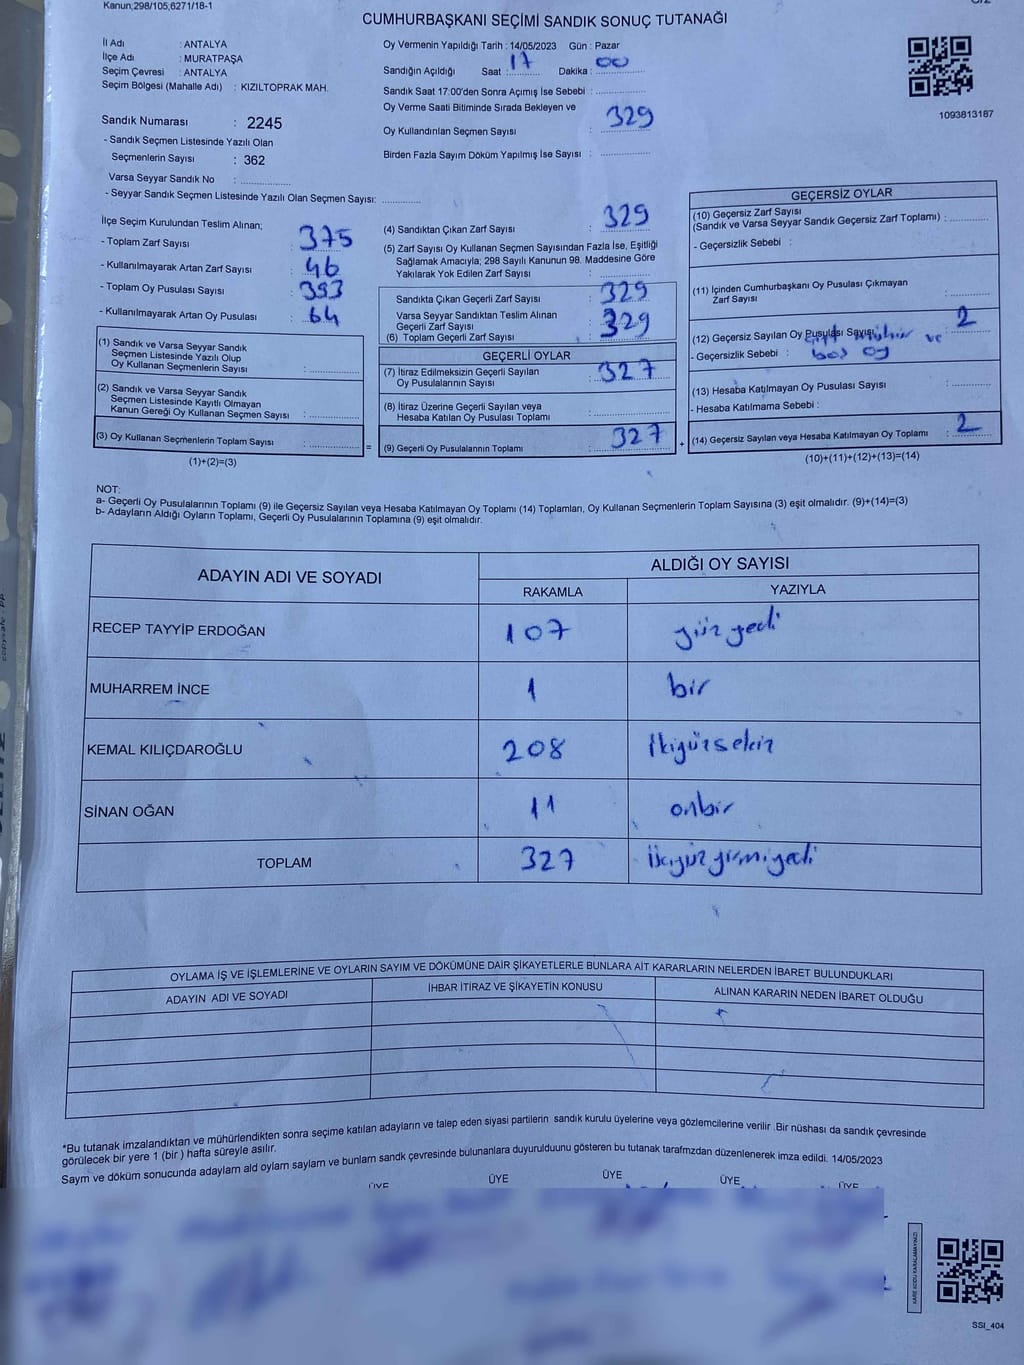 Kanun,298/105,6271/18-1
CUMHURBAŞKANI SEÇİMİ SANDIK SONUÇ TUTANAĞI
İl Adı : ANTALYA
İlçe Adı : MURATPAŞA
Seçim Çevresi : ANTALYA
Seçim Bölgesi (Mahalle Adı) : KIZILTOPRAK MAH.
Sandık Numarası : 2245
- Sandık Seçmen Listesinde Yazılı Olan
Seçmenlerin Sayısı : 362
Varsa Seyyar Sandık No :
- Seyyar Sandık Seçmen Listesinde Yazılı Olan Seçmen Sayısı:
Oy Vermenin Yapıldığı Tarih : 14/05/2023 Gün : Pazar
Sandığın Açıldığı Saat : 17 Dakika : 00
Sandık Saat 17:00'den Sonra Açımış İse Sebebi :
Oy Verme Saati Bitiminde Sırada Bekleyen ve
Oy Kullandırılan Seçmen Sayısı : 329
Birden Fazla Sayım Döküm Yapılmış İse Sayısı :
1093813187
İlçe Seçim Kurulundan Teslim Alınan;
- Toplam Zarf Sayısı : 375
- Kullanılmayarak Artan Zarf Sayısı : 46
- Toplam Oy Pusulası Sayısı : 393
- Kullanılmayarak Artan Oy Pusulası : 64
(1) Sandık ve Varsa Seyyar Sandık
Seçmen Listesinde Yazılı Olup
Oy Kullanan Seçmenlerin Sayısı :
(2) Sandık ve Varsa Seyyar Sandık
Seçmen Listesinde Kayıtlı Olmayan
Kanun Gereği Oy Kullanan Seçmen Sayısı :
(3) Oy Kullanan Seçmenlerin Toplam Sayısı :
(1)+(2)=(3)
(4) Sandıktan Çıkan Zarf Sayısı : 329
(5) Zarf Sayısı Oy Kullanan Seçmen Sayısından Fazla İse, Eşitliği
Sağlamak Amacıyla; 298 Sayılı Kanunun 98. Maddesine Göre
Yakılarak Yok Edilen Zarf Sayısı :
Sandıkta Çıkan Geçerli Zarf Sayısı : 329
Varsa Seyyar Sandıktan Teslim Alınan
Geçerli Zarf Sayısı
(6) Toplam Geçerli Zarf Sayısı : 329
GEÇERLİ OYLAR
(7) İtiraz Edilmeksizin Geçerli Sayılan
Oy Pusulalarının Sayısı : 327
(8) İtiraz Üzerine Geçerli Sayılan veya
Hesaba Katılan Oy Pusulası Toplamı :
= (9) Geçerli Oy Pusulalarının Toplamı : 327 +
GEÇERSİZ OYLAR
(10) Geçersiz Zarf Sayısı
(Sandık ve Varsa Seyyar Sandık Geçersiz Zarf Toplamı) :
- Geçersizlik Sebebi :
(11) İçinden Cumhurbaşkanı Oy Pusulası Çıkmayan
Zarf Sayısı :
(12) Geçersiz Sayılan Oy Pusulası Sayısı : 2
çift mühür ve
- Geçersizlik Sebebi : boş oy
(13) Hesaba Katılmayan Oy Pusulası Sayısı :
- Hesaba Katılmama Sebebi :
(14) Geçersiz Sayılan veya Hesaba Katılmayan Oy Toplamı : 2
(10)+(11)+(12)+(13)=(14)
NOT:
a- Geçerli Oy Pusulalarının Toplamı (9) ile Geçersiz Sayılan veya Hesaba Katılmayan Oy Toplamı (14) Toplamları, Oy Kullanan Seçmenlerin Toplam Sayısına (3) eşit olmalıdır. (9)+(14)=(3)
b- Adayların Aldığı Oyların Toplamı, Geçerli Oy Pusulalarının Toplamına (9) eşit olmalıdır.
ADAYIN ADI VE SOYADI ALDIĞI OY SAYISI
RAKAMLA YAZIYLA
RECEP TAYYİP ERDOĞAN 107 yüz yedi
MUHARREM İNCE 1 bir
KEMAL KILIÇDAROĞLU 208 İkiyüzsekiz
SİNAN OĞAN 11 onbir
TOPLAM 327 Üçyüzyirmiyedi
OYLAMA İŞ VE İŞLEMLERİNE VE OYLARIN SAYIM VE DÖKÜMÜNE DAİR ŞİKAYETLERLE BUNLARA AİT KARARLARIN NELERDEN İBARET BULUNDUKLARI
ADAYIN ADI VE SOYADI İHBAR İTİRAZ VE ŞİKAYETİN KONUSU ALINAN KARARIN NEDEN İBARET OLDUĞU
*Bu tutanak imzalandıktan ve mühürlendikten sonra seçime katılan adayların ve talep eden siyasi partilerin sandık kurulu üyelerine veya gözlemcilerine verilir .Bir nüshası da sandık çevresinde
görülecek bir yere 1 (bir ) hafta süreyle asılır.
Sayım ve döküm sonucunda adayların ald oyların saylam ve bunların sandk çevresinde bulunanlara duyurulduunu gösteren bu tutanak tarafmzdan düzenlenerek imza edildi. 14/05/2023
ÜYE ÜYE ÜYE ÜYE ÜYE
KARE KODU KARALAMAYINIZ!
SSI_404